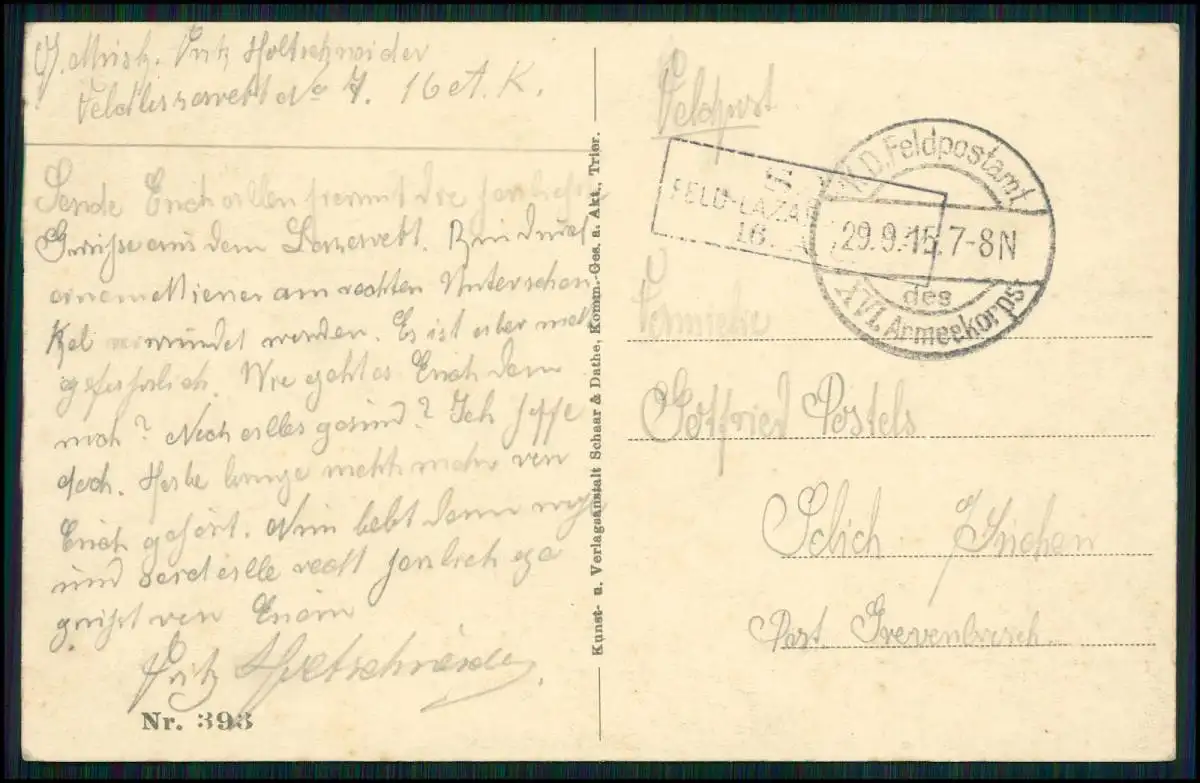 Fritz Holtschneider
Feldlazarett No 7. 16 A. K.
Sende Euch allen hiermit die herzlichst
Grüsse aus dem Lazarett. Bin durch
eine Miene am rechten Unterschen
kel verwundet worden. Es ist aber nicht
gefährlich. Wie geht es Euch denn
noch? Noch alles gesund? Ich hoffe
doch. Habe lange nichts mehr von
Euch gehört. Nun lebt denn wohl
und seid alle recht herzlich ge
grüßt von Eurem
Fritz Holtschneider.
Nr. 393
Kunst- u. Verlagsanstalt Schaar & Dathe, Komm.-Ges. a. Akt., Trier.
Feldpost
S.
FELD-LAZAR
16.
K.D. Feldpostamt
29.9.15. 7-8N
des
XVI. Armeekorps
Familie
Gottfried Postels
Selich
Post. Grevenbroich.